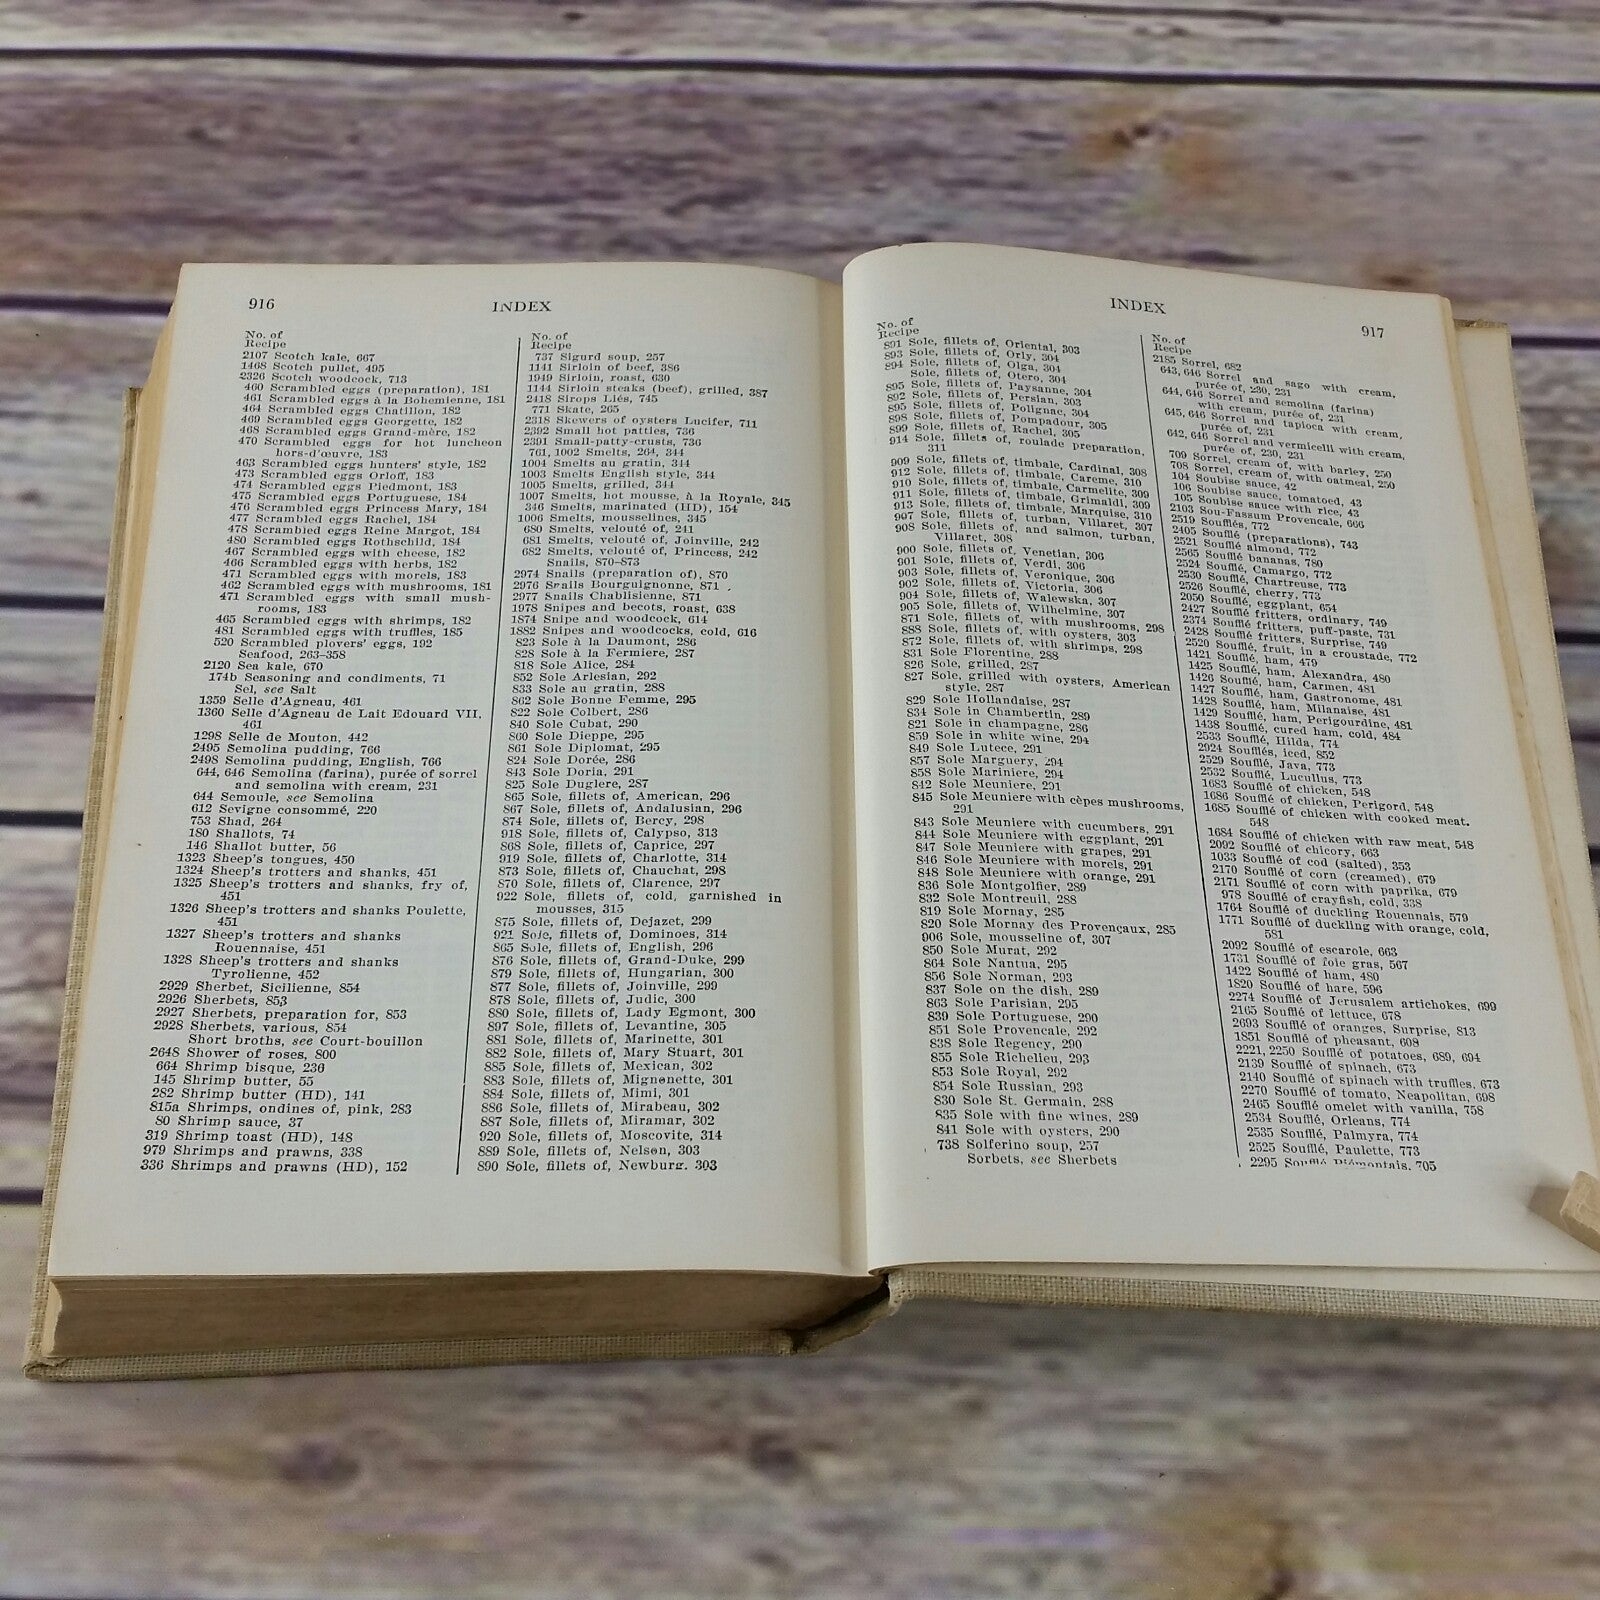 916
INDEX
No. of
Recipe
2107 Scotch kale, 667
1468 Scotch pullet, 495
2326 Scotch woodcock, 713
460 Scrambled eggs (preparation), 181
461 Scrambled eggs à la Bohemienne, 181
464 Scrambled eggs Chatillon, 182
469 Scrambled eggs Georgette, 182
468 Scrambled eggs Grand-mère, 182
470 Scrambled eggs for hot luncheon
hors-d'œuvre, 183
463 Scrambled eggs hunters' style, 182
473 Scrambled eggs Orloff, 183
474 Scrambled eggs Piedmont, 183
475 Scrambled eggs Portuguese, 184
476 Scrambled eggs Princess Mary, 184
477 Scrambled eggs Rachel, 184
478 Scrambled eggs Reine Margot, 184
480 Scrambled eggs Rothschild, 184
467 Scrambled eggs with cheese, 182
466 Scrambled eggs with herbs, 182
471 Scrambled eggs with morels, 183
462 Scrambled eggs with mushrooms, 181
471 Scrambled eggs with small mush-
rooms, 183
465 Scrambled eggs with shrimps, 182
481 Scrambled eggs with truffles, 185
520 Scrambled plovers' eggs, 192
Seafood, 263–358
2120 Sea kale, 670
174b Seasoning and condiments, 71
Sel, see Salt
1359 Selle d'Agneau, 461
1360 Selle d'Agneau de Lait Edouard VII,
461
1298 Selle de Mouton, 442
2495 Semolina pudding, 766
2498 Semolina pudding, English, 766
644, 646 Semolina (farina), purée of sorrel
and semolina with cream, 231
644 Semoule, see Semolina
612 Sevigne consommé, 220
753 Shad, 264
180 Shallots, 74
146 Shallot butter, 56
1323 Sheep's tongues, 450
1324 Sheep's trotters and shanks, 451
1325 Sheep's trotters and shanks, fry of,
451
1326 Sheep's trotters and shanks Poulette,
451
1327 Sheep's trotters and shanks
Rouennaise, 451
1328 Sheep's trotters and shanks
Tyrolienne, 452
2929 Sherbet, Sicilienne, 854
2926 Sherbets, 853
2927 Sherbets, preparation for, 853
2928 Sherbets, various, 854
Short broths, see Court-bouillon
2648 Shower of roses, 800
664 Shrimp bisque, 236
145 Shrimp butter, 55
282 Shrimp butter (HD), 141
815a Shrimps, ondines of, pink, 283
80 Shrimp sauce, 37
319 Shrimp toast (HD), 148
979 Shrimps and prawns, 338
336 Shrimps and prawns (HD), 152
No. of
Recipe
737 Sigurd soup, 257
1141 Sirloin of beef, 386
1949 Sirloin, roast, 630
1144 Sirloin steaks (beef), grilled, 387
2418 Sirops Liés, 745
771 Skate, 265
2318 Skewers of oysters Lucifer, 711
2392 Small hot patties, 736
2391 Small-patty-crusts, 736
761, 1002 Smelts, 264, 344
1004 Smelts au gratin, 344
1003 Smelts English style, 344
1005 Smelts, grilled, 344
1007 Smelts, hot mousse, à la Royale, 345
346 Smelts, marinated (HD), 154
1006 Smelts, mousselines, 345
680 Smelts, velouté of, 241
681 Smelts, velouté of, Joinville, 242
682 Smelts, velouté of, Princess, 242
Snails, 870–873
2974 Snails (preparation of), 870
2976 Snails Bourguignonne, 871
2977 Snails Chablisienne, 871
1978 Snipes and becots, roast, 638
1874 Snipe and woodcock, 614
1882 Snipes and woodcocks, cold, 616
823 Sole à la Daumont, 286
828 Sole à la Fermiere, 287
818 Sole Alice, 284
852 Sole Arlesian, 292
833 Sole au gratin, 288
862 Sole Bonne Femme, 295
822 Sole Colbert, 286
840 Sole Cubat, 290
860 Sole Dieppe, 295
861 Sole Diplomat, 295
824 Sole Dorée, 286
843 Sole Doria, 291
825 Sole Duglere, 287
865 Sole, fillets of, American, 296
867 Sole, fillets of, Andalusian, 296
874 Sole, fillets of, Bercy, 298
918 Sole, fillets of, Calypso, 313
868 Sole, fillets of, Caprice, 297
919 Sole, fillets of, Charlotte, 314
873 Sole, fillets of, Chauchat, 298
870 Sole, fillets of, Clarence, 297
922 Sole, fillets of, cold, garnished in
mousses, 315
875 Sole, fillets of, Dejazet, 299
921 Sole, fillets of, Dominoes, 314
865 Sole, fillets of, English, 296
876 Sole, fillets of, Grand-Duke, 299
879 Sole, fillets of, Hungarian, 300
877 Sole, fillets of, Joinville, 299
878 Sole, fillets of, Judic, 300
880 Sole, fillets of, Lady Egmont, 300
897 Sole, fillets of, Levantine, 305
881 Sole, fillets of, Marinette, 301
882 Sole, fillets of, Mary Stuart, 301
885 Sole, fillets of, Mexican, 302
883 Sole, fillets of, Mignonette, 301
884 Sole, fillets of, Mimi, 301
886 Sole, fillets of, Mirabeau, 302
887 Sole, fillets of, Miramar, 302
920 Sole, fillets of, Moscovite, 314
889 Sole, fillets of, Nelson, 303
890 Sole, fillets of, Newburg, 303
INDEX
917
No. of
Recipe
891 Sole, fillets of, Oriental, 303
893 Sole, fillets of, Orly, 304
894 Sole, fillets of, Olga, 304
Sole, fillets of, Otero, 304
895 Sole, fillets of, Paysanne, 304
892 Sole, fillets of, Persian, 303
895 Sole, fillets of, Polignac, 304
898 Sole, fillets of, Pompadour, 305
899 Sole, fillets of, Rachel, 305
914 Sole, fillets of, roulade preparation,
311
909 Sole, fillets of, timbale, Cardinal, 308
912 Sole, fillets of, timbale, Careme, 310
910 Sole, fillets of, timbale, Carmelite, 309
911 Sole, fillets of, timbale, Grimaldi, 309
913 Sole, fillets of, timbale, Marquise, 310
907 Sole, fillets of, turban, Villaret, 307
908 Sole, fillets of, and salmon, turban,
Villaret, 308
900 Sole, fillets of, Venetian, 306
901 Sole, fillets of, Verdi, 306
903 Sole, fillets of, Veronique, 306
902 Sole, fillets of, Victoria, 306
904 Sole, fillets of, Walewska, 307
905 Sole, fillets of, Wilhelmine, 307
871 Sole, fillets of, with mushrooms, 298
888 Sole, fillets of, with oysters, 303
872 Sole, fillets of, with shrimps, 298
831 Sole Florentine, 288
826 Sole, grilled, 287
827 Sole, grilled with oysters, American
style, 287
829 Sole Hollandaise, 287
834 Sole in Chambertin, 289
821 Sole in champagne, 286
859 Sole in white wine, 294
849 Sole Lutece, 291
857 Sole Marguery, 294
858 Sole Mariniere, 294
842 Sole Meuniere, 291
845 Sole Meuniere with cèpes mushrooms,
291
843 Sole Meuniere with cucumbers, 291
844 Sole Meuniere with eggplant, 291
847 Sole Meuniere with grapes, 291
846 Sole Meuniere with morels, 291
848 Sole Meuniere with orange, 291
836 Sole Montgolfier, 289
832 Sole Montreuil, 288
819 Sole Mornay, 285
820 Sole Mornay des Provençaux, 285
906 Sole, mousseline of, 307
850 Sole Murat, 292
864 Sole Nantua, 295
856 Sole Norman, 293
837 Sole on the dish, 289
863 Sole Parisian, 295
839 Sole Portuguese, 290
851 Sole Provencale, 292
838 Sole Regency, 290
855 Sole Richelieu, 293
853 Sole Royal, 292
854 Sole Russian, 293
830 Sole St. Germain, 288
835 Sole with fine wines, 289
841 Sole with oysters, 290
738 Solferino soup, 257
Sorbets, see Sherbets
No. of
Recipe
2185 Sorrel, 682
643, 646 Sorrel and sago with cream,
purée of, 230, 231
644, 646 Sorrel and semolina (farina)
with cream, purée of, 231
645, 646 Sorrel and tapioca with cream,
purée of, 231
642, 646 Sorrel and vermicelli with cream,
purée of, 230, 231
709 Sorrel, cream of, with barley, 250
708 Sorrel, cream of, with oatmeal, 250
104 Soubise sauce, 42
106 Soubise sauce, tomatoed, 43
105 Soubise sauce with rice, 43
2103 Sou-Fassum Provencale, 666
2519 Soufflés, 772
2405 Soufflé (preparations), 743
2521 Soufflé almond, 772
2565 Soufflé bananas, 780
2524 Soufflé, Camargo, 772
2530 Soufflé, Chartreuse, 773
2526 Soufflé, cherry, 773
2050 Soufflé, eggplant, 654
2427 Soufflé fritters, ordinary, 749
2374 Soufflé fritters, puff-paste, 731
2428 Soufflé fritters, Surprise, 749
2520 Soufflé, fruit, in a croustade, 772
1421 Soufflé, ham, 479
1425 Soufflé, ham, Alexandra, 480
1426 Soufflé, ham, Carmen, 481
1427 Soufflé, ham, Gastronome, 481
1428 Soufflé, ham, Milanaise, 481
1429 Soufflé, ham, Perigourdine, 481
1438 Soufflé, cured ham, cold, 484
2533 Soufflé, Hilda, 774
2924 Soufflés, iced, 852
2529 Soufflé, Java, 773
2532 Soufflé, Lucullus, 773
1683 Soufflé of chicken, 548
1686 Soufflé of chicken, Perigord, 548
1685 Soufflé of chicken with cooked meat.
548
1684 Soufflé of chicken with raw meat, 548
2092 Soufflé of chicory, 663
1033 Soufflé of cod (salted), 353
2170 Soufflé of corn (creamed), 679
2171 Soufflé of corn with paprika, 679
978 Soufflé of crayfish, cold, 338
1764 Soufflé of duckling Rouennais, 579
1771 Soufflé of duckling with orange, cold,
581
2092 Soufflé of escarole, 663
1731 Soufflé of foie gras, 567
1422 Soufflé of ham, 480
1820 Soufflé of hare, 596
2274 Soufflé of Jerusalem artichokes, 699
2165 Soufflé of lettuce, 678
2693 Soufflé of oranges, Surprise, 813
1851 Soufflé of pheasant, 608
2221, 2250 Soufflé of potatoes, 689, 694
2139 Soufflé of spinach, 673
2140 Soufflé of spinach with truffles, 673
2270 Soufflé of tomato, Neapolitan, 698
2465 Soufflé omelet with vanilla, 758
2534 Soufflé, Orleans, 774
2535 Soufflé, Palmyra, 774
2525 Soufflé, Paulette, 773
2295 Soufflé Piémontais, 705